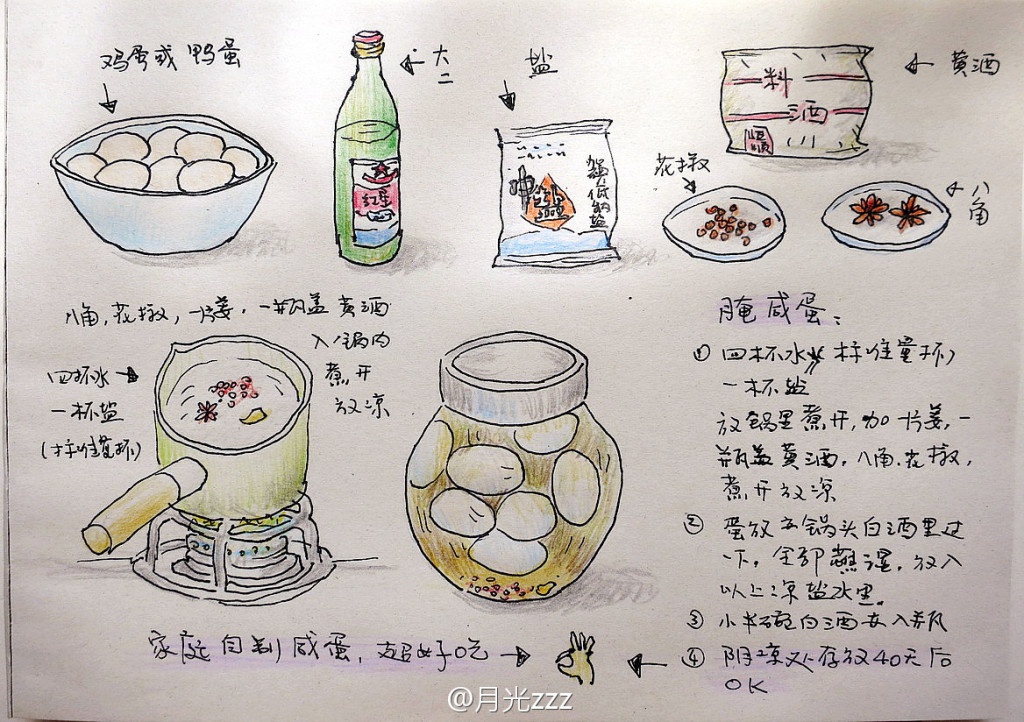 鸡蛋或鸭蛋
大
二
盐
黄酒
料
酒
花椒
八
角
红星
低钠盐
八角,花椒,一片姜,一瓶盖黄酒
入锅内
煮开
放凉
四杯水
一杯盐
(标准量杯)
腌咸蛋:
① 四杯水(标准量杯)
一杯盐
放锅里煮开,加一片姜,一
瓶盖黄酒,八角.花椒,
煮开放凉
② 蛋放二锅头白酒里过
一下,全部蘸湿,放入
以上凉盐水里
③ 小半碗白酒
④ 阴凉处存放40天后
OK
家庭自制咸蛋,超好吃
@月光zzz